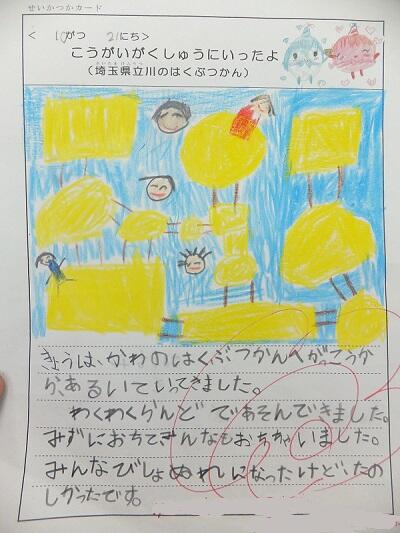 せいかつかカード
< 10がつ 21にち>
こうがいがくしゅうにいったよ
(埼玉県立川のはくぶつかん)
きょうは、かわのはくぶつかんへがっこうか
ら、あるいていってきました。
わくわくらんど であそんできました。
みずにおちてきんなもおちちゃいました。
みんなびしょぬれになったけど、たの
しかったです。